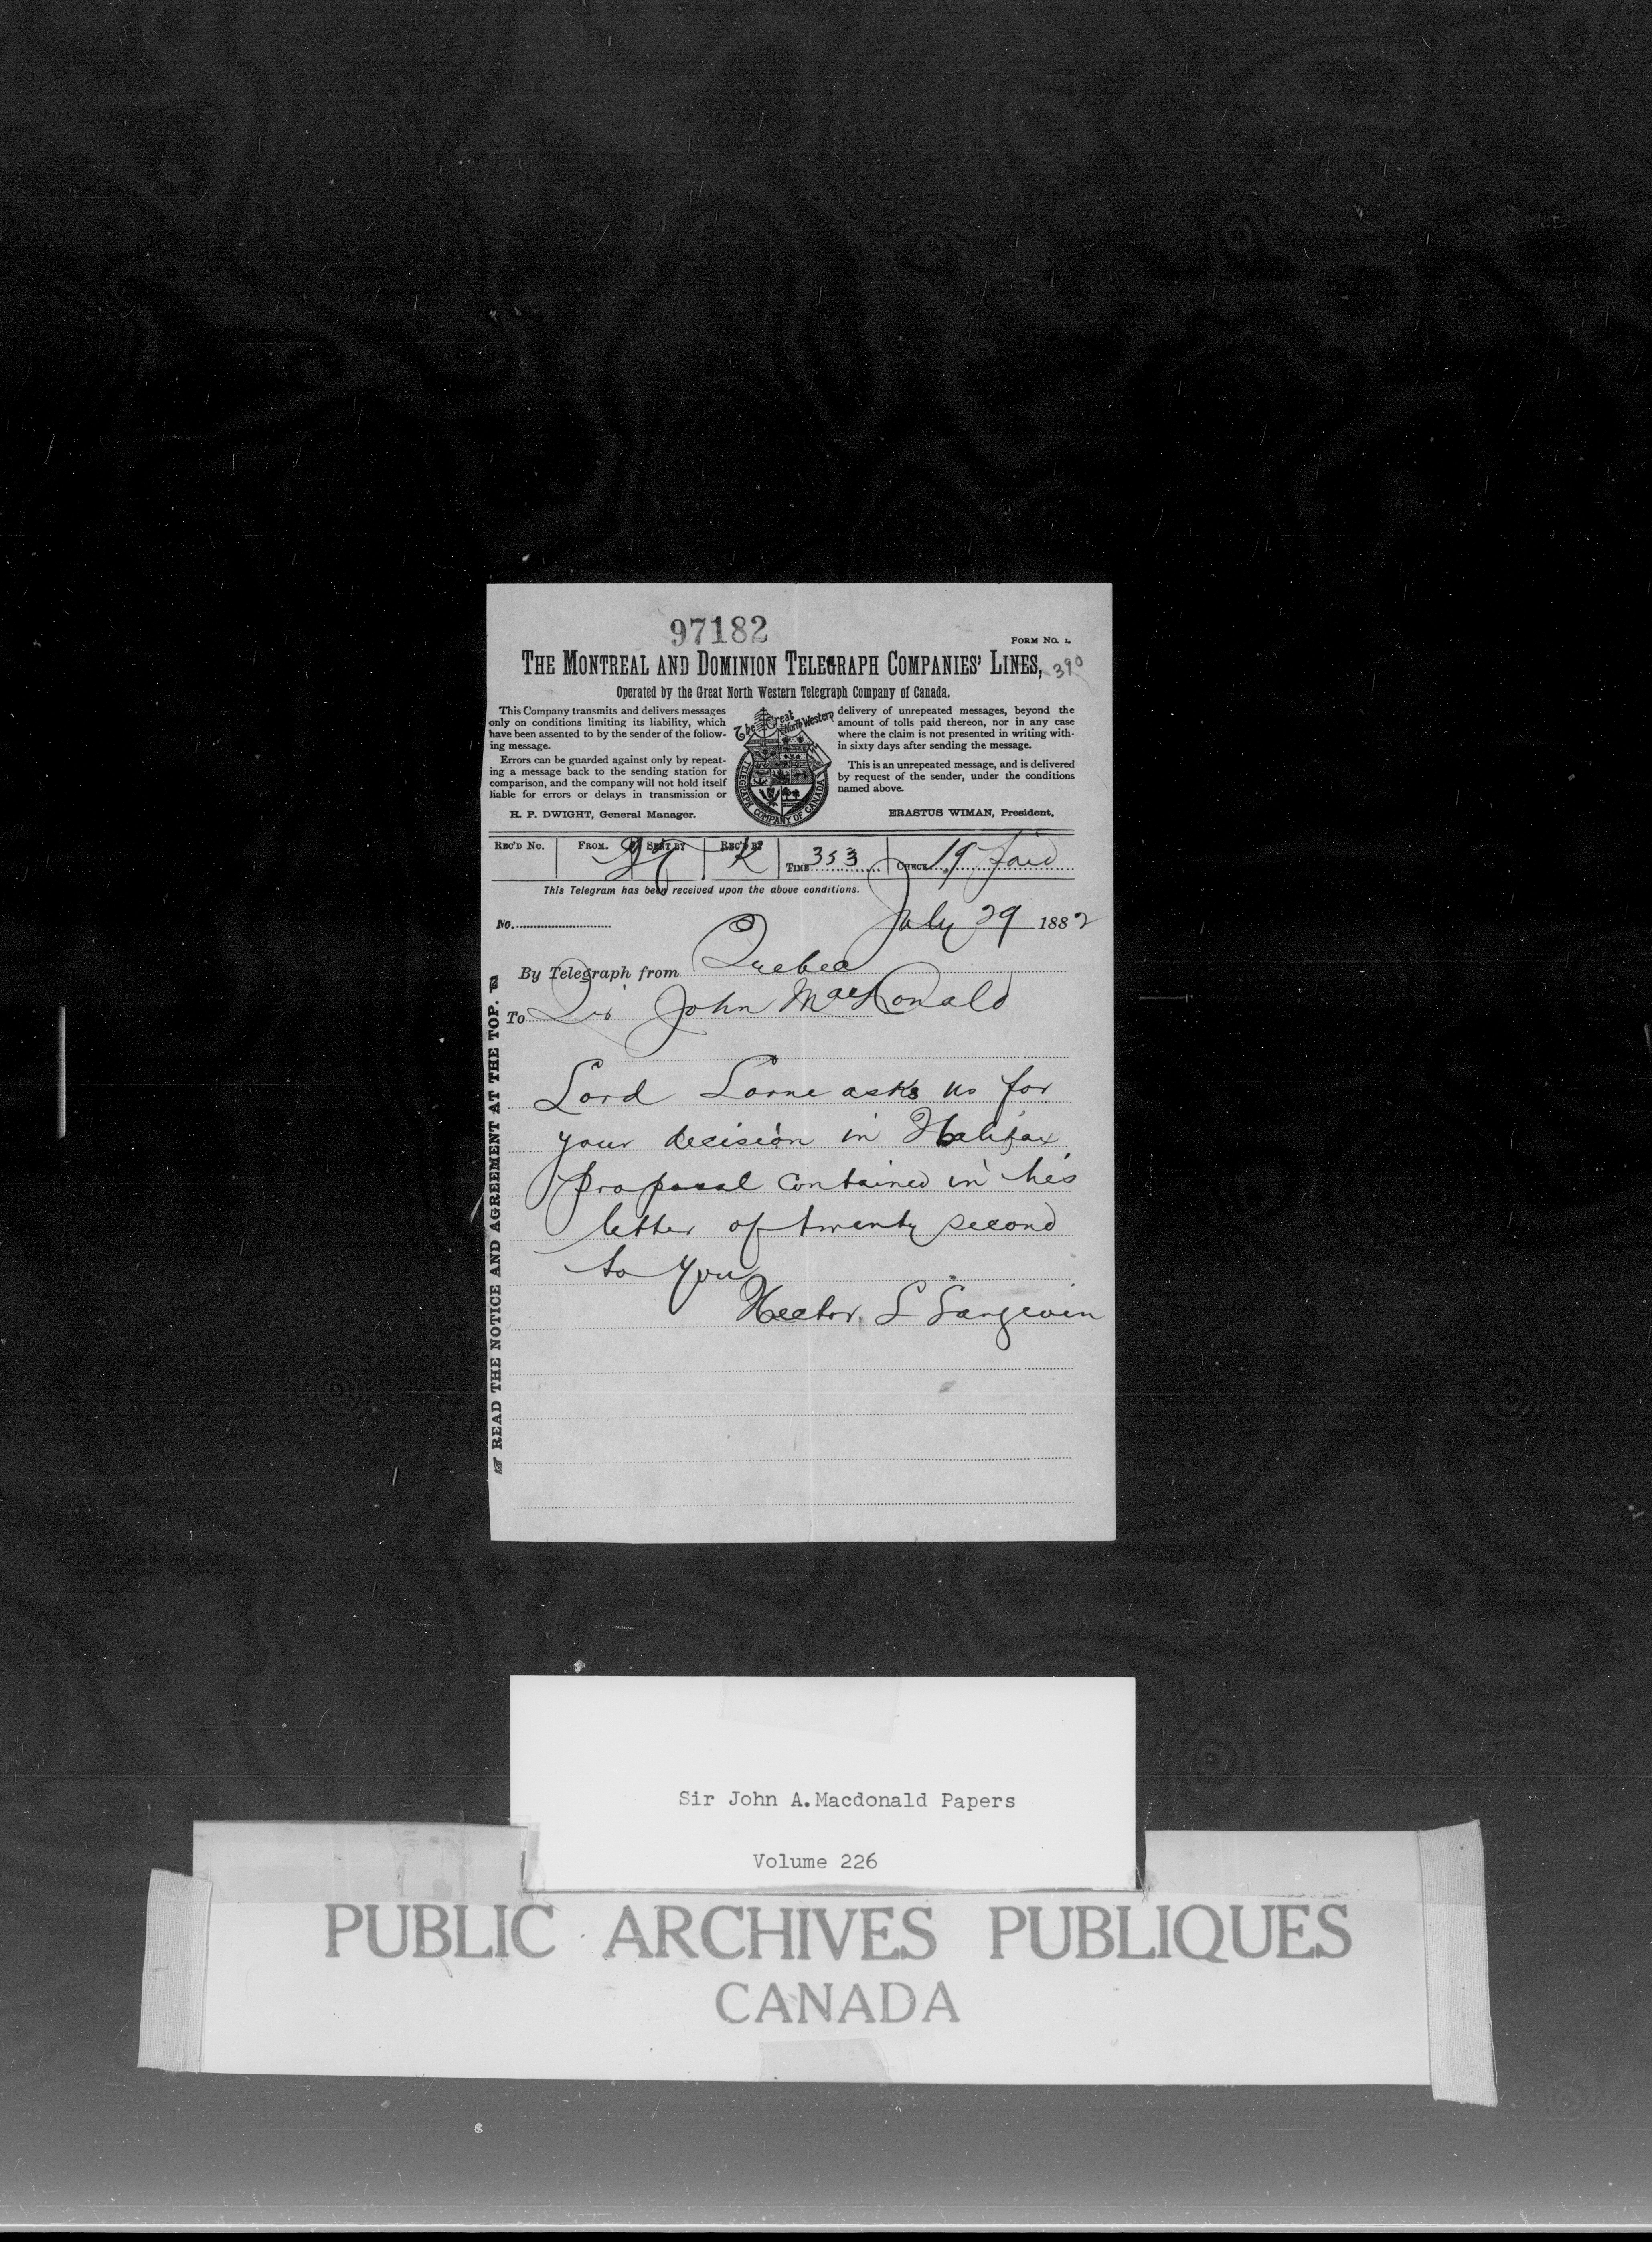 97182
FORM NO. 1.
THE MONTREAL AND DOMINION TELEGRAPH COMPANIES' LINES,
390
Operated by the Great North Western Telegraph Company of Canada.
This Company transmits and delivers messages
only on conditions limiting its liability, which
have been assented to by the sender of the follow-
ing message.
Errors can be guarded against only by repeat-
ing a message back to the sending station for
comparison, and the company will not hold itself
liable for errors or delays in transmission or
H. P. DWIGHT, General Manager.
The Great North Western
TELEGRAPH COMPANY OF CANADA
delivery of unrepeated messages, beyond the
amount of tolls paid thereon, nor in any case
where the claim is not presented in writing with-
in sixty days after sending the message.
This is an unrepeated message, and is delivered
by request of the sender, under the conditions
named above.
ERASTUS WIMAN, President.
REC'D No. FROM. SENT BY REC'D BY K TIME 353 CHECK 19 Paid
This Telegram has been received upon the above conditions.
July 29 1882
No.
By Telegraph from Quebec
To Sir John MacDonald
Lord Lorne asks us for
your decision in Halifax
proposal contained in his
letter of twenty second
to you
Hector L Langevin
READ THE NOTICE AND AGREEMENT AT THE TOP.
Sir John A.Macdonald Papers
Volume 226
PUBLIC ARCHIVES PUBLIQUES
CANADA